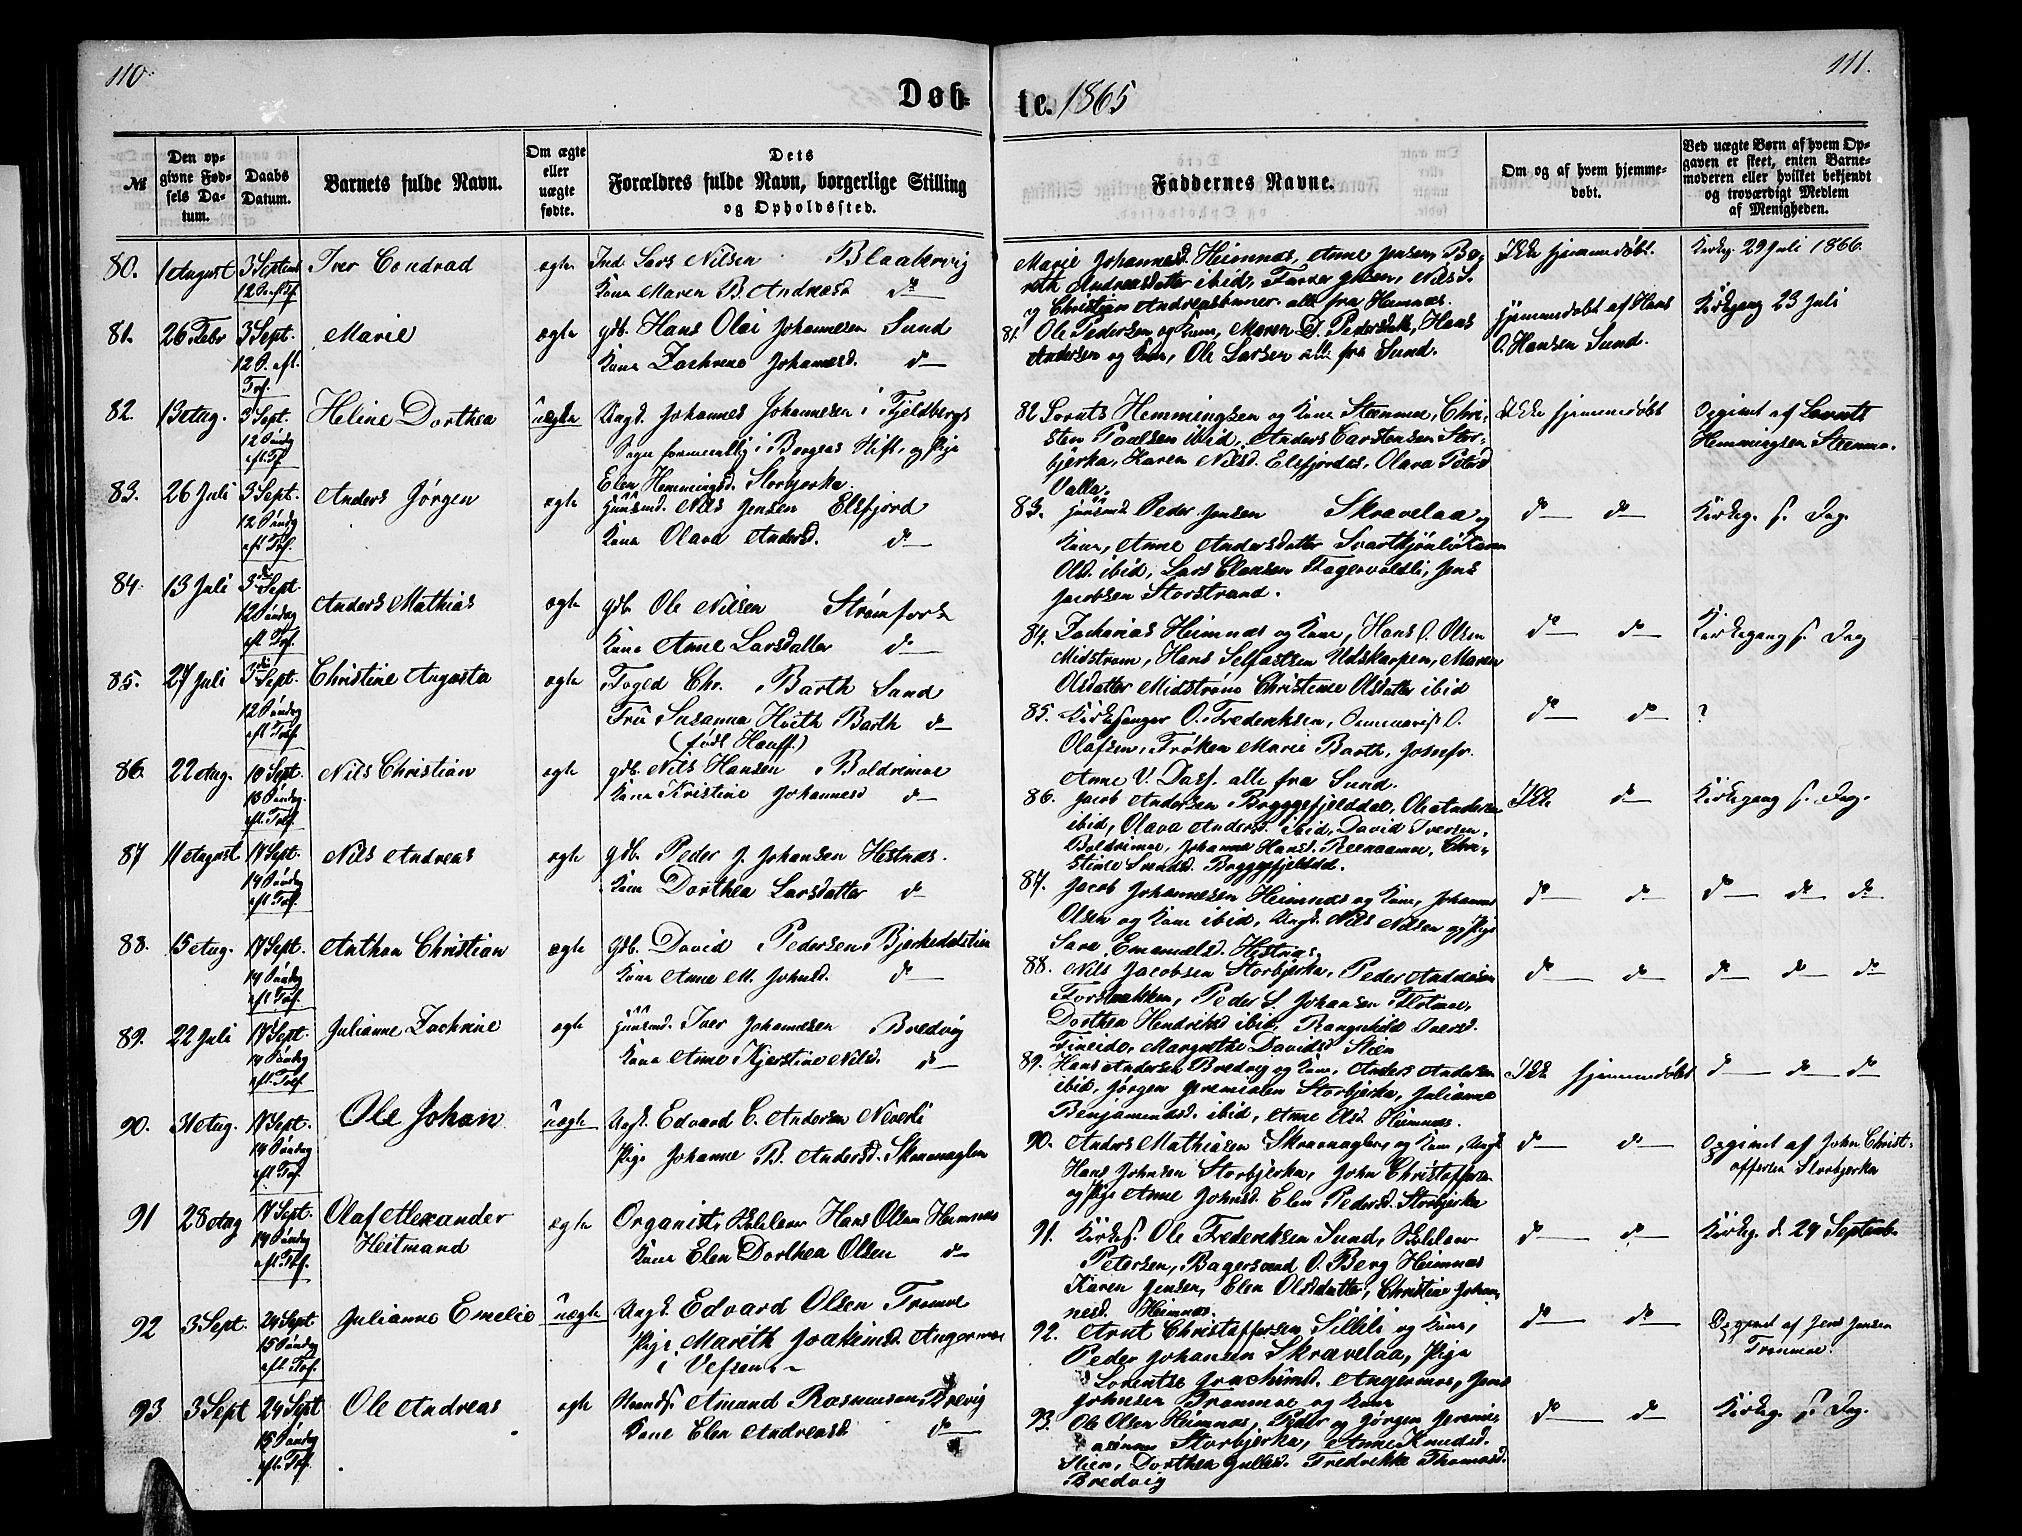 110.
111.
Døb-
te. 1865
№
Den op-
givne Fød-
sels Da-
tum.
Daabs
Datum.
Barnets fulde Navn.
Om ægte
eller
uægte
fødte.
Dets
Forældres fulde Navn, borgerlige Stilling
og Opholdssted.
Faddernes Navne.
Om og af hvem hjemme-
døbt.
Ved uægte Børn af hvem Op-
gaven er skeet, enten Barne-
moderen eller hvilket bekjendt
og troværdigt Medlem
af Menigheden.
80.
1 August
3 Septemb
12 S. eft. Tf.
Iver Condrad
ægte
Ind Lars Nilsen Blaakervig
Kone Maren B. Andreasd do
Marie Johannesd. Heimnæs, Anne Jensen, Be-
reth Andreasdatter ibid, Nils L.
og Christian Andreas alle fra Hemnæs.
Ikke hjemmedøbt.
Kirkeg. 29 Juli 1866.
81.
26 Febr
3 Sept.
12 S. eft.
Tref.
Marie
ægte
gdb. Hans Olai Johannesen Sund
Kone Zachrine Johannesd. do
81. Ole Pedersen og Kone, Maren D. Pedersdatt, Hans
Andersen og Kone, Ole Larsen alle fra Sund.
hjemmedøbt af Hans
O. Hansen Sund.
Kirkegang 23 Juli
82.
13 Aug.
3 Sept.
12 Søndag
eft. Tf.
Heline Dorthea
uægte
Ungk. Johannes Johannesen i Fjeldbergs
Sogn formentlig i Bergens Stift, og Pige
Elen Hemmingsd. Storbjerka.
82 Lornts Hemmingsen og Kone Steenmo, Chri-
sten Paulsen ibid, Anders Carstensen Stor-
bjerka, Karen Nilsd. Elsfjorden, Olava Petersd
Valla.
Ikke hjemmedøbt
Opgivet af Lornts
Hemmingsen Steenmo.
83.
26 Juli
3 Sept.
12 Søndag
eft. Tref.
Anders Jørgen
ægte
Huusmd. Nils Jensen Elsfjord
Kone Olava Andersd. do
83. Huusmd Peder Jensen Skravelaa og
Kone, Anne Andersdatter Svarttjønli, Karen
Olsd. ibid, Lars Clausen Fagervoldli, Jens
Jacobsen Storstrand.
do do
Kirkeg. s. Dag.
84.
13 Juli
3de Sept
12 Søndag
eft Tref.
Anders Mathias
ægte
gdb. Ole Nilsen Strømfors
Kone Anne Larsdatter do
84. Zacharias Heimnæs og Kone, Hans O. Olsen
Midstrøm, Hans Selfastsen Udskarpen, Maren
Olsdatter Midstrøm Christense Olsdatter ibid
do do
Kirkegang s. Dag
85.
27 Juli
3de Sept.
12 Søndag
eft Tref.
Christine Augusta
ægte
Foged Chr. Barth Sund
Frü Susanna Hvith Barth do
(født Hauff.)
85. Kirkesanger O. Frederiksen, O.
Olafsen, Frøken Marie Barth, Jomfr.
Anne V. Dass. alle fra Sund.
do do
?
86.
22 Aug.
10 Sept.
13 Søndag.
eft. Tref.
Nils Christian
ægte
gdb. Nils Hansen Boldrimoe
Kone Kristine Johannesd do
86. Jacob Andersen Bryggefjelddal, Ole Andersen
ibid, Olava Andersd. ibid, David Iversen
Boldrimoe, Johanna Hansd. Reenaamoe, Chri-
stine Svendsd. Bryggefjelddal.
Ikke do
Kirkegang s. Dag.
87
11 August
17 Sept.
14 Søndag
eft Tref.
Nils Andreas
ægte
gdb. Peder J. Johansen Hestnæs.
Kone Dorthea Larsdatter do
87. Jacob Johannesen Heimnæs og Kone, Johannes
Olsen og Kone ibid, Ungk. Nils Nilsen og Pige
Sara Emanuelsd. Hestnæs.
do do
do do do
88.
15 Aug.
17 Sept.
14 Søndag
eft Tref.
Anthon Christian
ægte
gdb. David Pedersen Bjerkedalstien
Kone Anne M. Johnsd. do
88. Nils Jacobsen Storbjerka, Peder Andersen
Forsbakken, Peder S. Johansen Flotmoe,
Dorthea Hendriksd ibid, Rangnhild Iversd.
Fineide, Margrethe Davidsd Stien
do do
do do do
89.
22 Juli
17 Sept.
14 Søndag
eft. Tref.
Julianne Zachrine
ægte
Huusmd. Iver Johannesen Bredvig
Kone Anne Kjerstine Nilsd. do
89. Hans Andersen Bredvig og Kone, Anders Andersen
ibid, Jørgen Jeremiasen Storbjerka, Julianne
Benjaminsd. ibid, Anne Olsd. Heimnæs.
Ikke hjemmedøbt
do do do
90.
31 Aug.
17 Sept.
14 Søndag
eft Tref.
Ole Johan
uægte
Ungk. Edvard C. Andersen Neverli
Pige Johanne B. Andersd. Skravnaglen
90. Anders Mathiasen Skravnaglen og Kone, Ungk
Hans Johnsen Storbjerka, John Christoffersen
og Pige Anne Johnsd. Elen Pedersd. Storbjerka
do do
Opgivet af John Christ-
offersen Storbjerka
91
28 Aug
17 Sept.
14 Søndag
eft. Tref.
Olaf Alexander
Heitmand
ægte
Organist, Skolelærer Hans Olsen Hemnæs
Kone Elen Dorthea Olsen do
91. Kirkes. Ole Frederiksen Sund, Skolelærer
Petersen, Bagersvend O. Berg Heimnæs
Karen Jensen, Elen Olsdatter, Christine Johan-
nesd. Heimnæs.
do do
Kirkeg. d. 24 Septemb.
92
3 Sept.
24 Sept
15 Søndag
eft. Tref.
Julianne Emelie
uægte
Ungk. Edvard Olsen Tronmoe
Pige Mareth Joakimsd. Angermoe
i Vefsen.
92. Arnt Christoffersen Sillili og Kone,
Peder Johansen Skravelaa, Pige
Lorentse Joachimsd. Angermoe, Jens
Johnsen Tronmoe og Kone
do do
Opgivet af Jens Jensen
Tronmoe.
93
3 Sept
24 Sept
15 Søndag
eft. Tref.
Ole Andreas
ægte
Strands. Amand Rasmussen Brevig
Kone Elen Andreasd do
93. Ole Olsen Heimnæs, Peder og Jørgen Jeremi-
asønner Storbjerka, Anne Knudsd.
Stien, Dorthea Gullesd. Fredrikke Thomasd.
Bredvig
do do
Kirkeg. s. Dag.